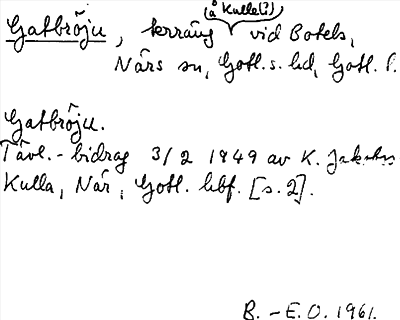 (å Kulle(?))
Gatbröju, terräng vid Botels,
Närs sn, Gotl. s. hd, Gotl. l.
Gatbröju.
Tävl.-bidrag 3/2 1949 av K. Jakobss
Kulla, När, Gotl. hbf. [s. 2].
B.-E.O. 1961.